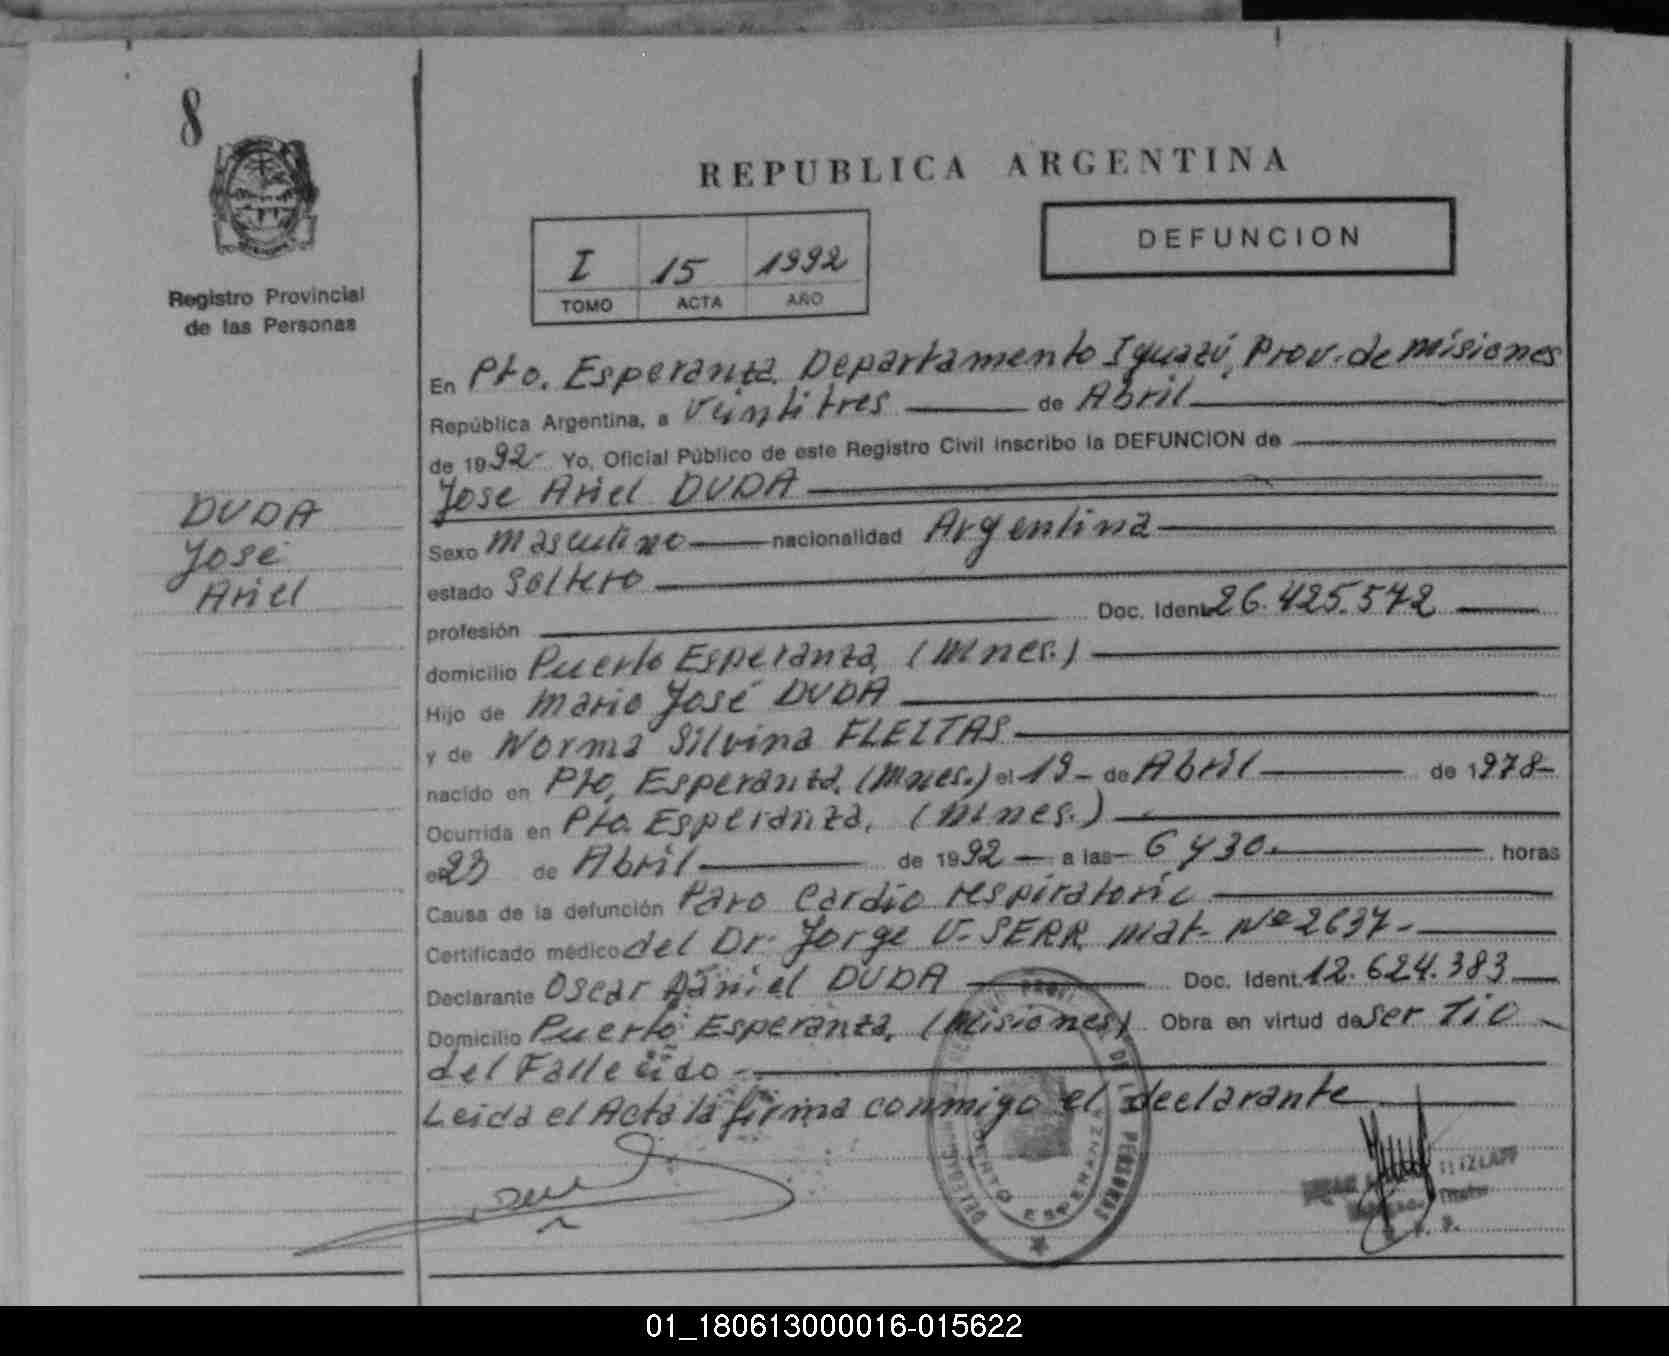 8
REPUBLICA ARGENTINA
DEFUNCION
I 15 1992
TOMO ACTA AÑO
Registro Provincial
de las Personas
DUDA
José
Ariel
En Pto. Esperanza, Departamento Iguazú, Prov. de Misiones
República Argentina, a Veintitres de Abril
de 1992- Yo, Oficial Público de este Registro Civil inscribo la DEFUNCION de
Jose Ariel DUDA
Sexo Masculino nacionalidad Argentina
estado Soltero
profesión Doc. Ident. 26.425.572
domicilio Puerto Esperanza, (Mnes.)
Hijo de Mario José DUDA
y de Norma Silvina FLEITAS
nacido en Pto. Esperanza, (Mnes.) el 19- de Abril de 1978-
Ocurrida en Pto. Esperanza, (Mnes.)
el 23 de Abril de 1992 a las 6 y 30. horas
Causa de la defunción Paro Cardio respiratorio
Certificado médico del Dr. Jorge U. SERR, Mat. Nº 2637.-
Declarante Oscar Daniel DUDA Doc. Ident. 12.624.383
Domicilio Puerto Esperanza, (Misiones) Obra en virtud de ser Tio
del Fallecido
Leida el Acta la firma conmigo el declarante
DE PERSONAS
ESPERANZA
01_180613000016-015622